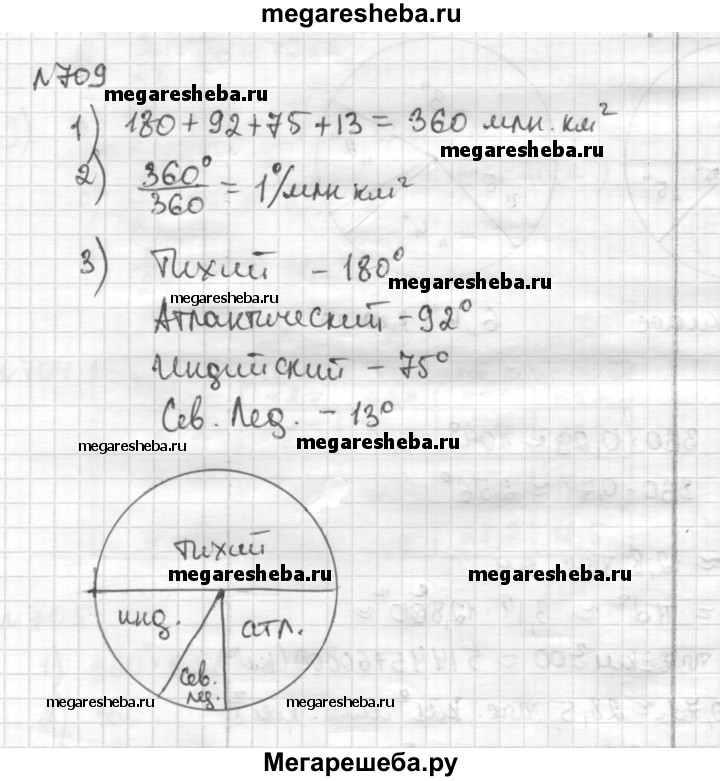 megaresheba.ru
№709
megaresheba.ru
1) 180 + 92 + 75 + 13 = 360 млн. км²
megaresheba.ru
2) 360°/360 = 1°/млн км²
3) Тихий – 180°
megaresheba.ru
megaresheba.ru
Атлактический – 92°
Индийский – 75°
Сев. Лед. – 13°
megaresheba.ru
megaresheba.ru
Тихий
megaresheba.ru
megaresheba.ru
инд.
атл.
Сев.
лед.
megaresheba.ru
megaresheba.ru
Мегарешеба.ру